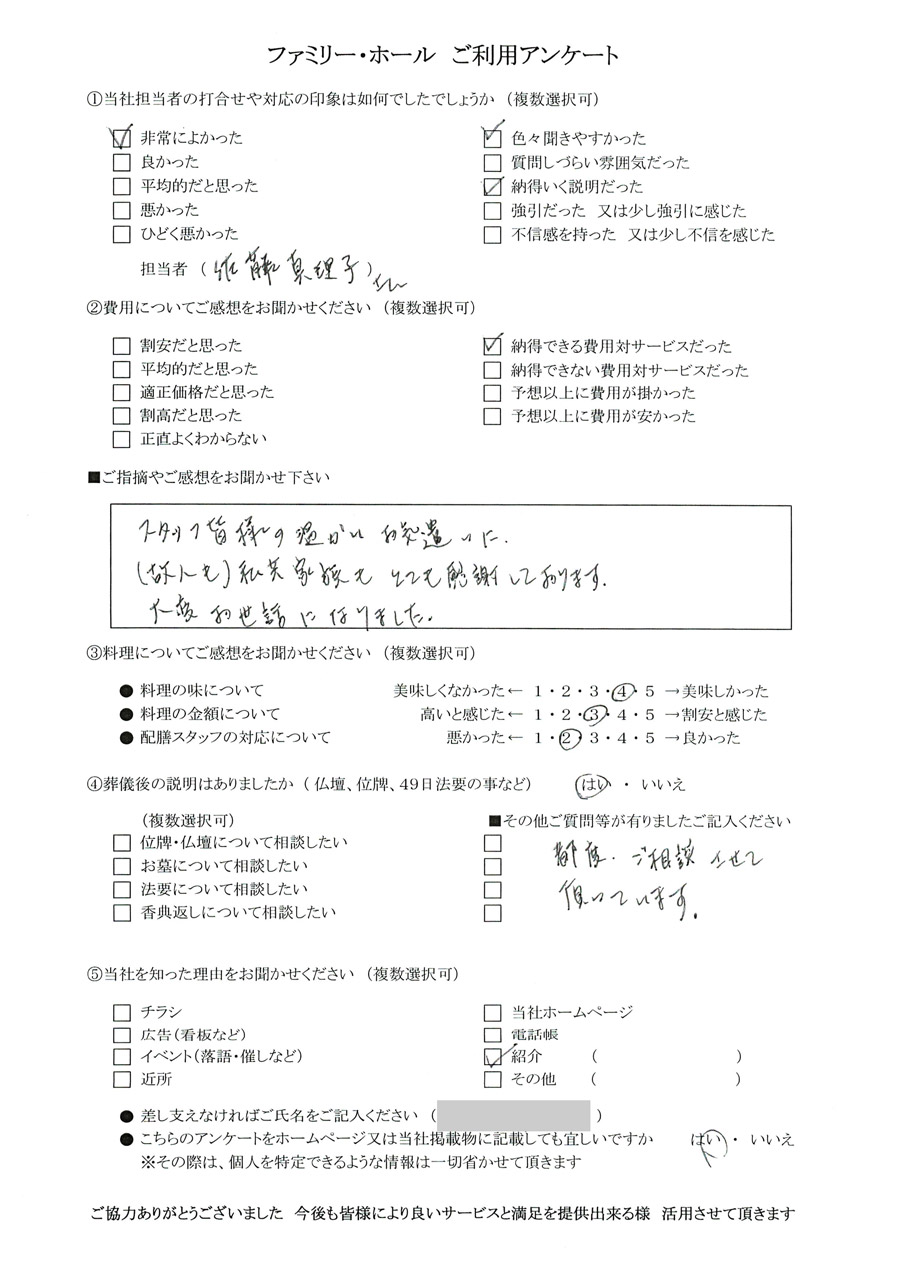 ファミリー・ホール ご利用アンケート
①当社担当者の打合せや対応の印象は如何でしたでしょうか (複数選択可)
非常によかった 色々聞きやすかった
良かった 質問しづらい雰囲気だった
平均的だと思った 納得いく説明だった
悪かった 強引だった 又は少し強引に感じた
ひどく悪かった 不信感を持った 又は少し不信を感じた
担当者 (佐藤真理子)
②費用についてご感想をお聞かせください (複数選択可)
割安だと思った 納得できる費用対サービスだった
平均的だと思った 納得できない費用対サービスだった
適正価格だと思った 予想以上に費用が掛かった
割高だと思った 予想以上に費用が安かった
正直よくわからない
■ご指摘やご感想をお聞かせ下さい
スタッフ皆様の温かいお気遣いに、
(故人も)私共家族もとても感謝しております。
大変お世話になりました。
③料理についてご感想をお聞かせください (複数選択可)
● 料理の味について 美味しくなかった← 1・2・3・4・5 →美味しかった
● 料理の金額について 高いと感じた← 1・2・3・4・5 →割安と感じた
● 配膳スタッフの対応について 悪かった← 1・2・3・4・5 →良かった
④葬儀後の説明はありましたか (仏壇、位牌、49日法要の事など) はい ・ いいえ
(複数選択可) ■その他ご質問等が有りましたご記入ください
位牌・仏壇について相談したい
お墓について相談したい 都度、ご相談させて
法要について相談したい 頂いています。
香典返しについて相談したい
⑤当社を知った理由をお聞かせください (複数選択可)
チラシ 当社ホームページ
広告(看板など) 電話帳
イベント(落語・催しなど) 紹介 ( )
近所 その他 ( )
● 差し支えなければご氏名をご記入ください ( )
● こちらのアンケートをホームページ又は当社掲載物に記載しても宜しいですか はい ・ いいえ
※その際は、個人を特定できるような情報は一切省かせて頂きます
ご協力ありがとうございました 今後も皆様により良いサービスと満足を提供出来る様 活用させて頂きます